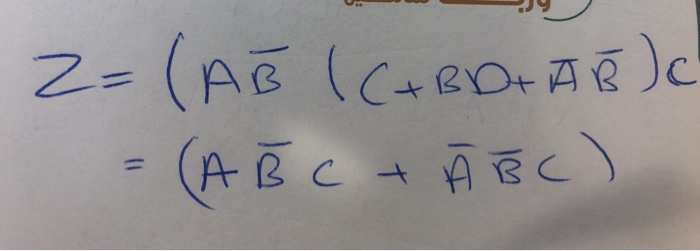 Z = (AB̅ (C+BD+A̅B̅)C
= (AB̅C + A̅B̅C)